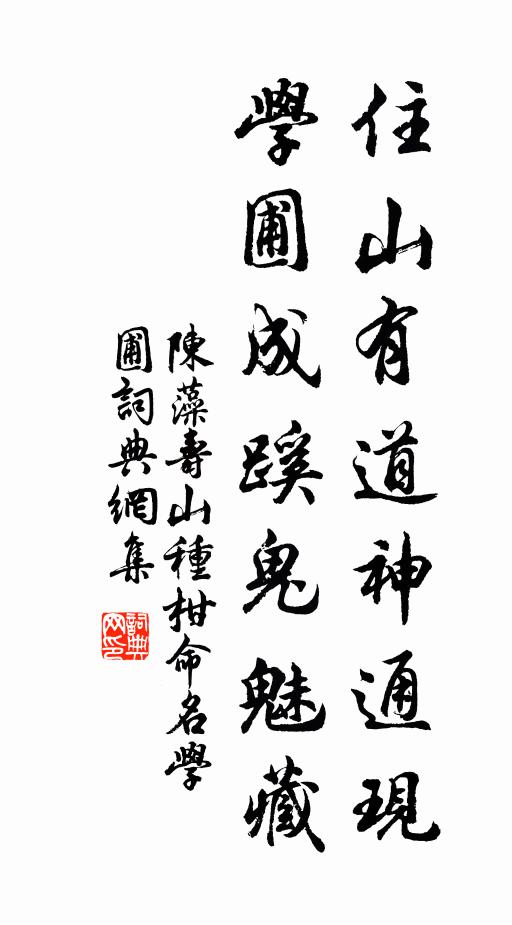 住山有道神通現
學圃成蹊鬼魅藏
陳藻壽山種柑命名學
圃詞典網集
詞典網印